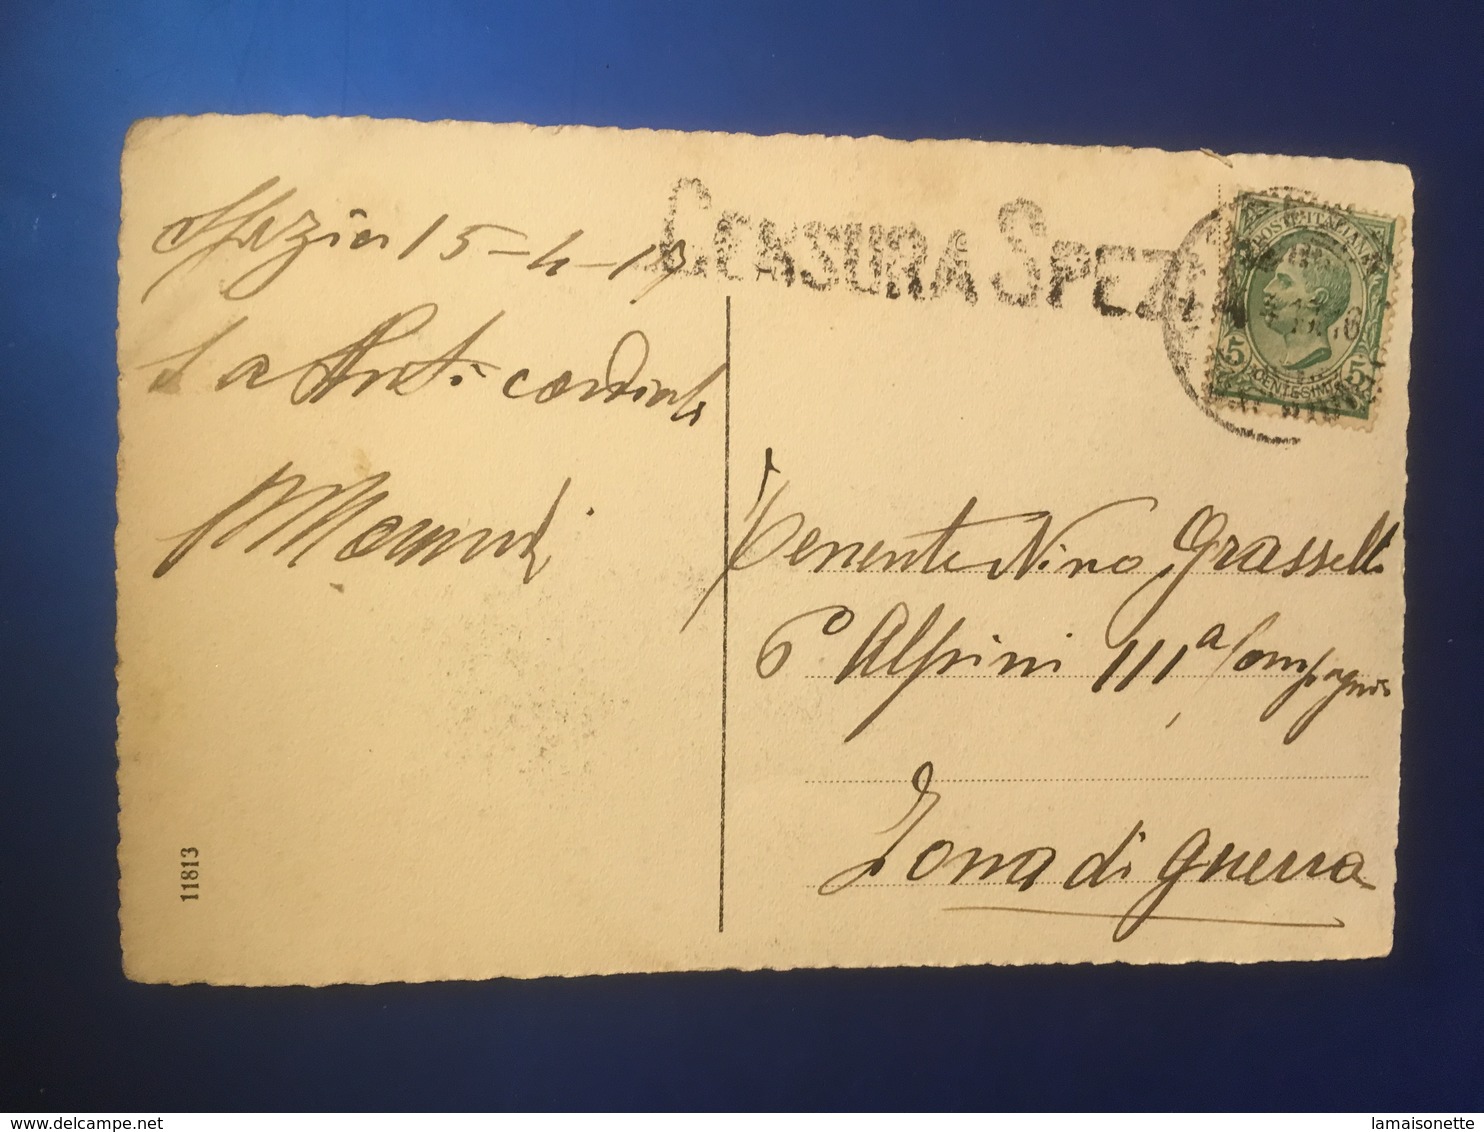 Spezia 15-4-19
Saluti cordiali
CENSURA SPEZIA
POSTE ITALIANE
5 5
CENTESIMI
Tenente Nino Grasselli
6° Alpini 111ª Compagnia
Zona di guerra
11813
www.delcampe.net
lamaisonette